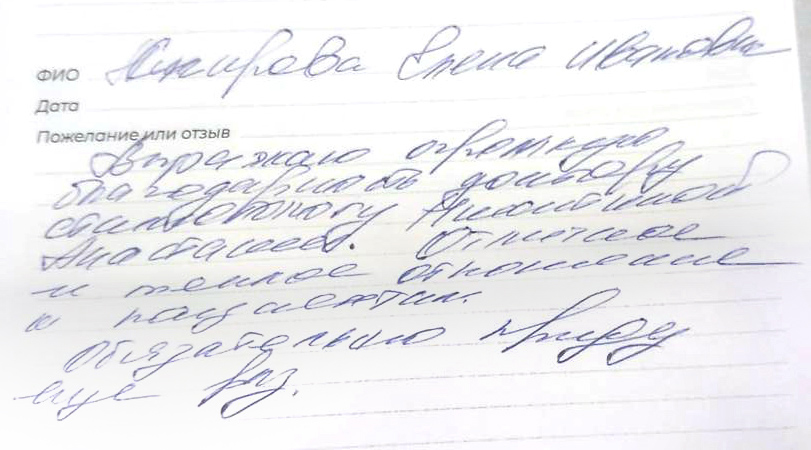 ФИО Елена Ивановна
Дата
Пожелание или отзыв
Выражаю огромную
благодарность доктору
стоматологу
Анастасии. Отличное
и теплое отношение
к пациентам.
Обязательно приду
еще раз.